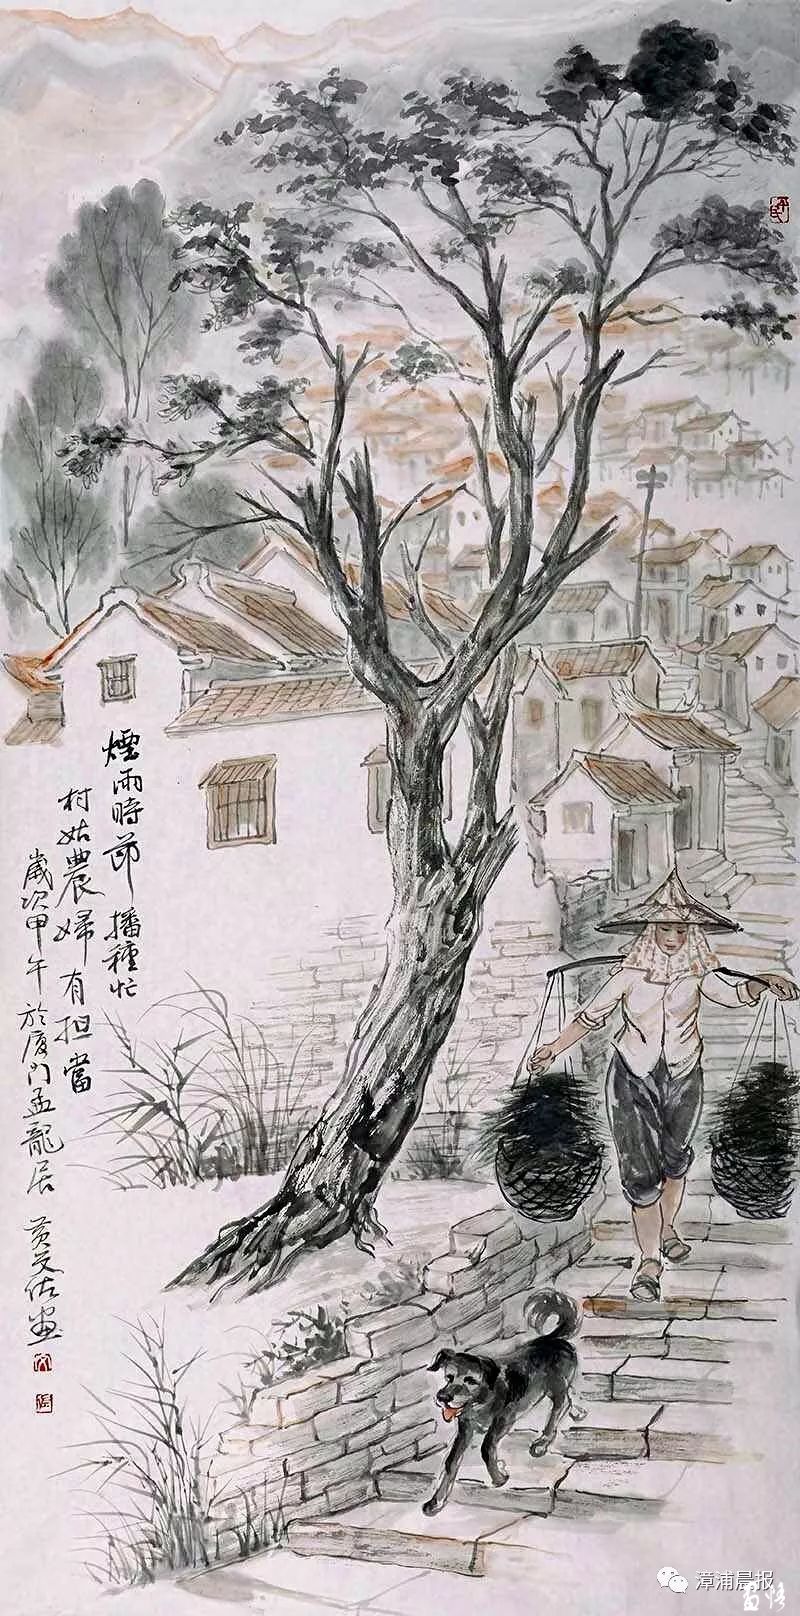 煙雨時節播種忙
村姑農婦有担當
歲次甲午於厦门孟龍居 黄文佐画
漳浦晨报